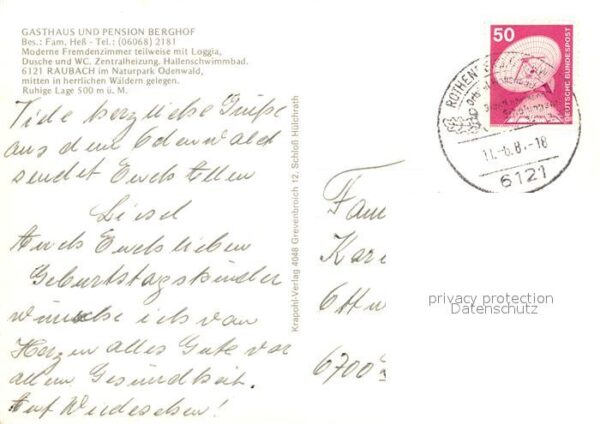 GASTHAUS UND PENSION BERGHOF
Bes.: Fam. Heß - Tel.: (06068) 2181
Moderne Fremdenzimmer teilweise mit Loggia,
Dusche und WC. Zentralheizung. Hallenschwimmbad.
6121 RAUBACH im Naturpark Odenwald,
mitten in herrlichen Wäldern gelegen.
Ruhige Lage 500 m ü. M.
Viele herzliche Grüße
aus dem Odenwald
sendet Euch Allen
Liesel
Auch Euch lieben
Geburtstagskinder
wünsche ich von
Herzen alles Gute vor
allem Gesundheit.
Auf Wiedesehen!
Krapohl-Verlag 4048 Grevenbroich 12, Schloß Hülchrath
50
DEUTSCHE BUNDESPOST
ROTHEN
11.-6.8.-18
6121
Fam
Kar
6700
privacy protection
Datenschutz